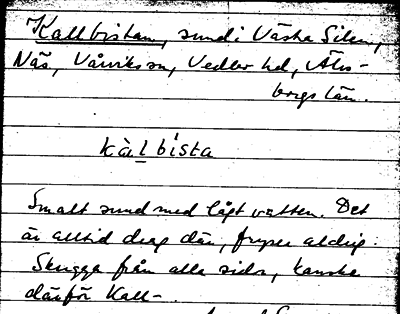 Kallbistan, sund i Västra Silen,
Näs, Vårviks sn, Vedbo hd, Älvs-
borgs län.
kàlbista
Smalt sund med lågt vatten. Det
är alltid drag där, fryser aldrig.
Skugga från alla sidor, kanske
därför Kall-.